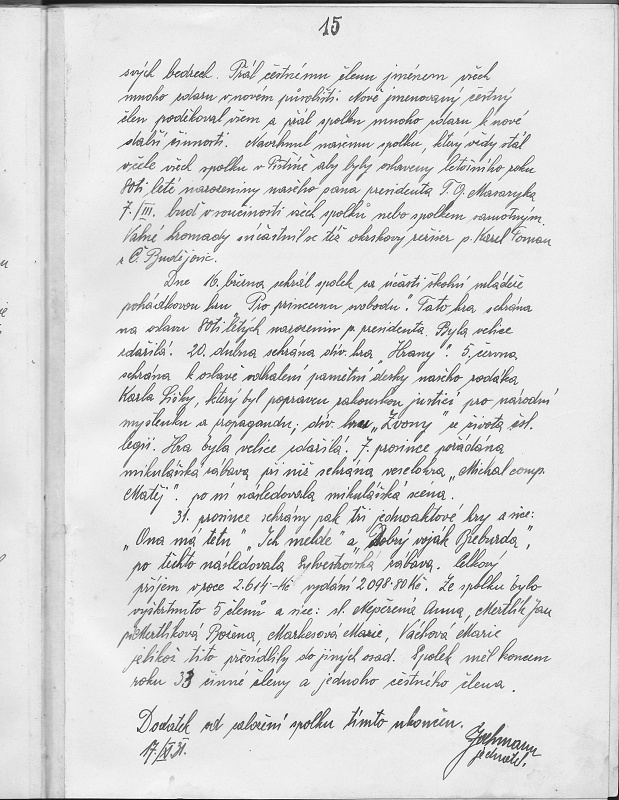 15
svých bedrech. Přál čestnému členu jménem všech
mnoho zdaru v novém působišti. Nově jmenovaný čestný
člen poděkoval všem a přál spolku mnoho zdaru k nové
další činnosti. Navrhnul našemu spolku, který vždy stál
v čele všech spolku v Pištíně aby byly oslaveny letošního roku
80ti leté narozeniny našeho pana presidenta T. G. Masaryka
7./III. buď v součinosti všech spolků nebo spolkem samotným.
Valné hromady súčastnil se též okrskový režiser p. Karel Toman
z Č. Budějovic.
Dne 16. března sehrál spolek za účasti školní mládeže
pohádkovou hru "Pro princeznu svobodu". Tato hra sehrána
na oslavu 80ti letých narozenin p. presidenta. Byla velice
zdařilá. 20. dubna sehrána div. hra "Hrany". 5. června
sehrána k oslavě odhalení pamětní desky našeho rodáka
Karla Lišky, který byl popraven rakouskou justicí pro národní
myšlenku a propagandu, div. hra "Zvony" ze života čsl.
legií. Hra byla velice zdařilá. 7. prosince pořádána
mikulášská zábava při níž sehrána veselohra "Michal comp.
Matěj". po ní následovala mikulášská scena.
31. prosince sehrány pak tři jednoaktové hry a sice:
"Ona má tetu" "Ich melde" a "Dobrý voják Břeburda",
po těchto následovala Sylvestrovská zábava. Celkový
příjem v roce 2.614- Kč vydání 2098·80 Kč. Ze spolku bylo
vyškrtnuto 5 členů a sice: sl. Nepeřená Anna, Mertlík Jan
Mertlíková Božena, Markesová Marie, Váchová Marie
jelikož tito přesídlily do jiných osad. Spolek měl koncem
roku 33 činné členy a jednoho čestného člena.
Dodatek od založení spolku tímto ukončen.
17./IV 31.
jednatel.